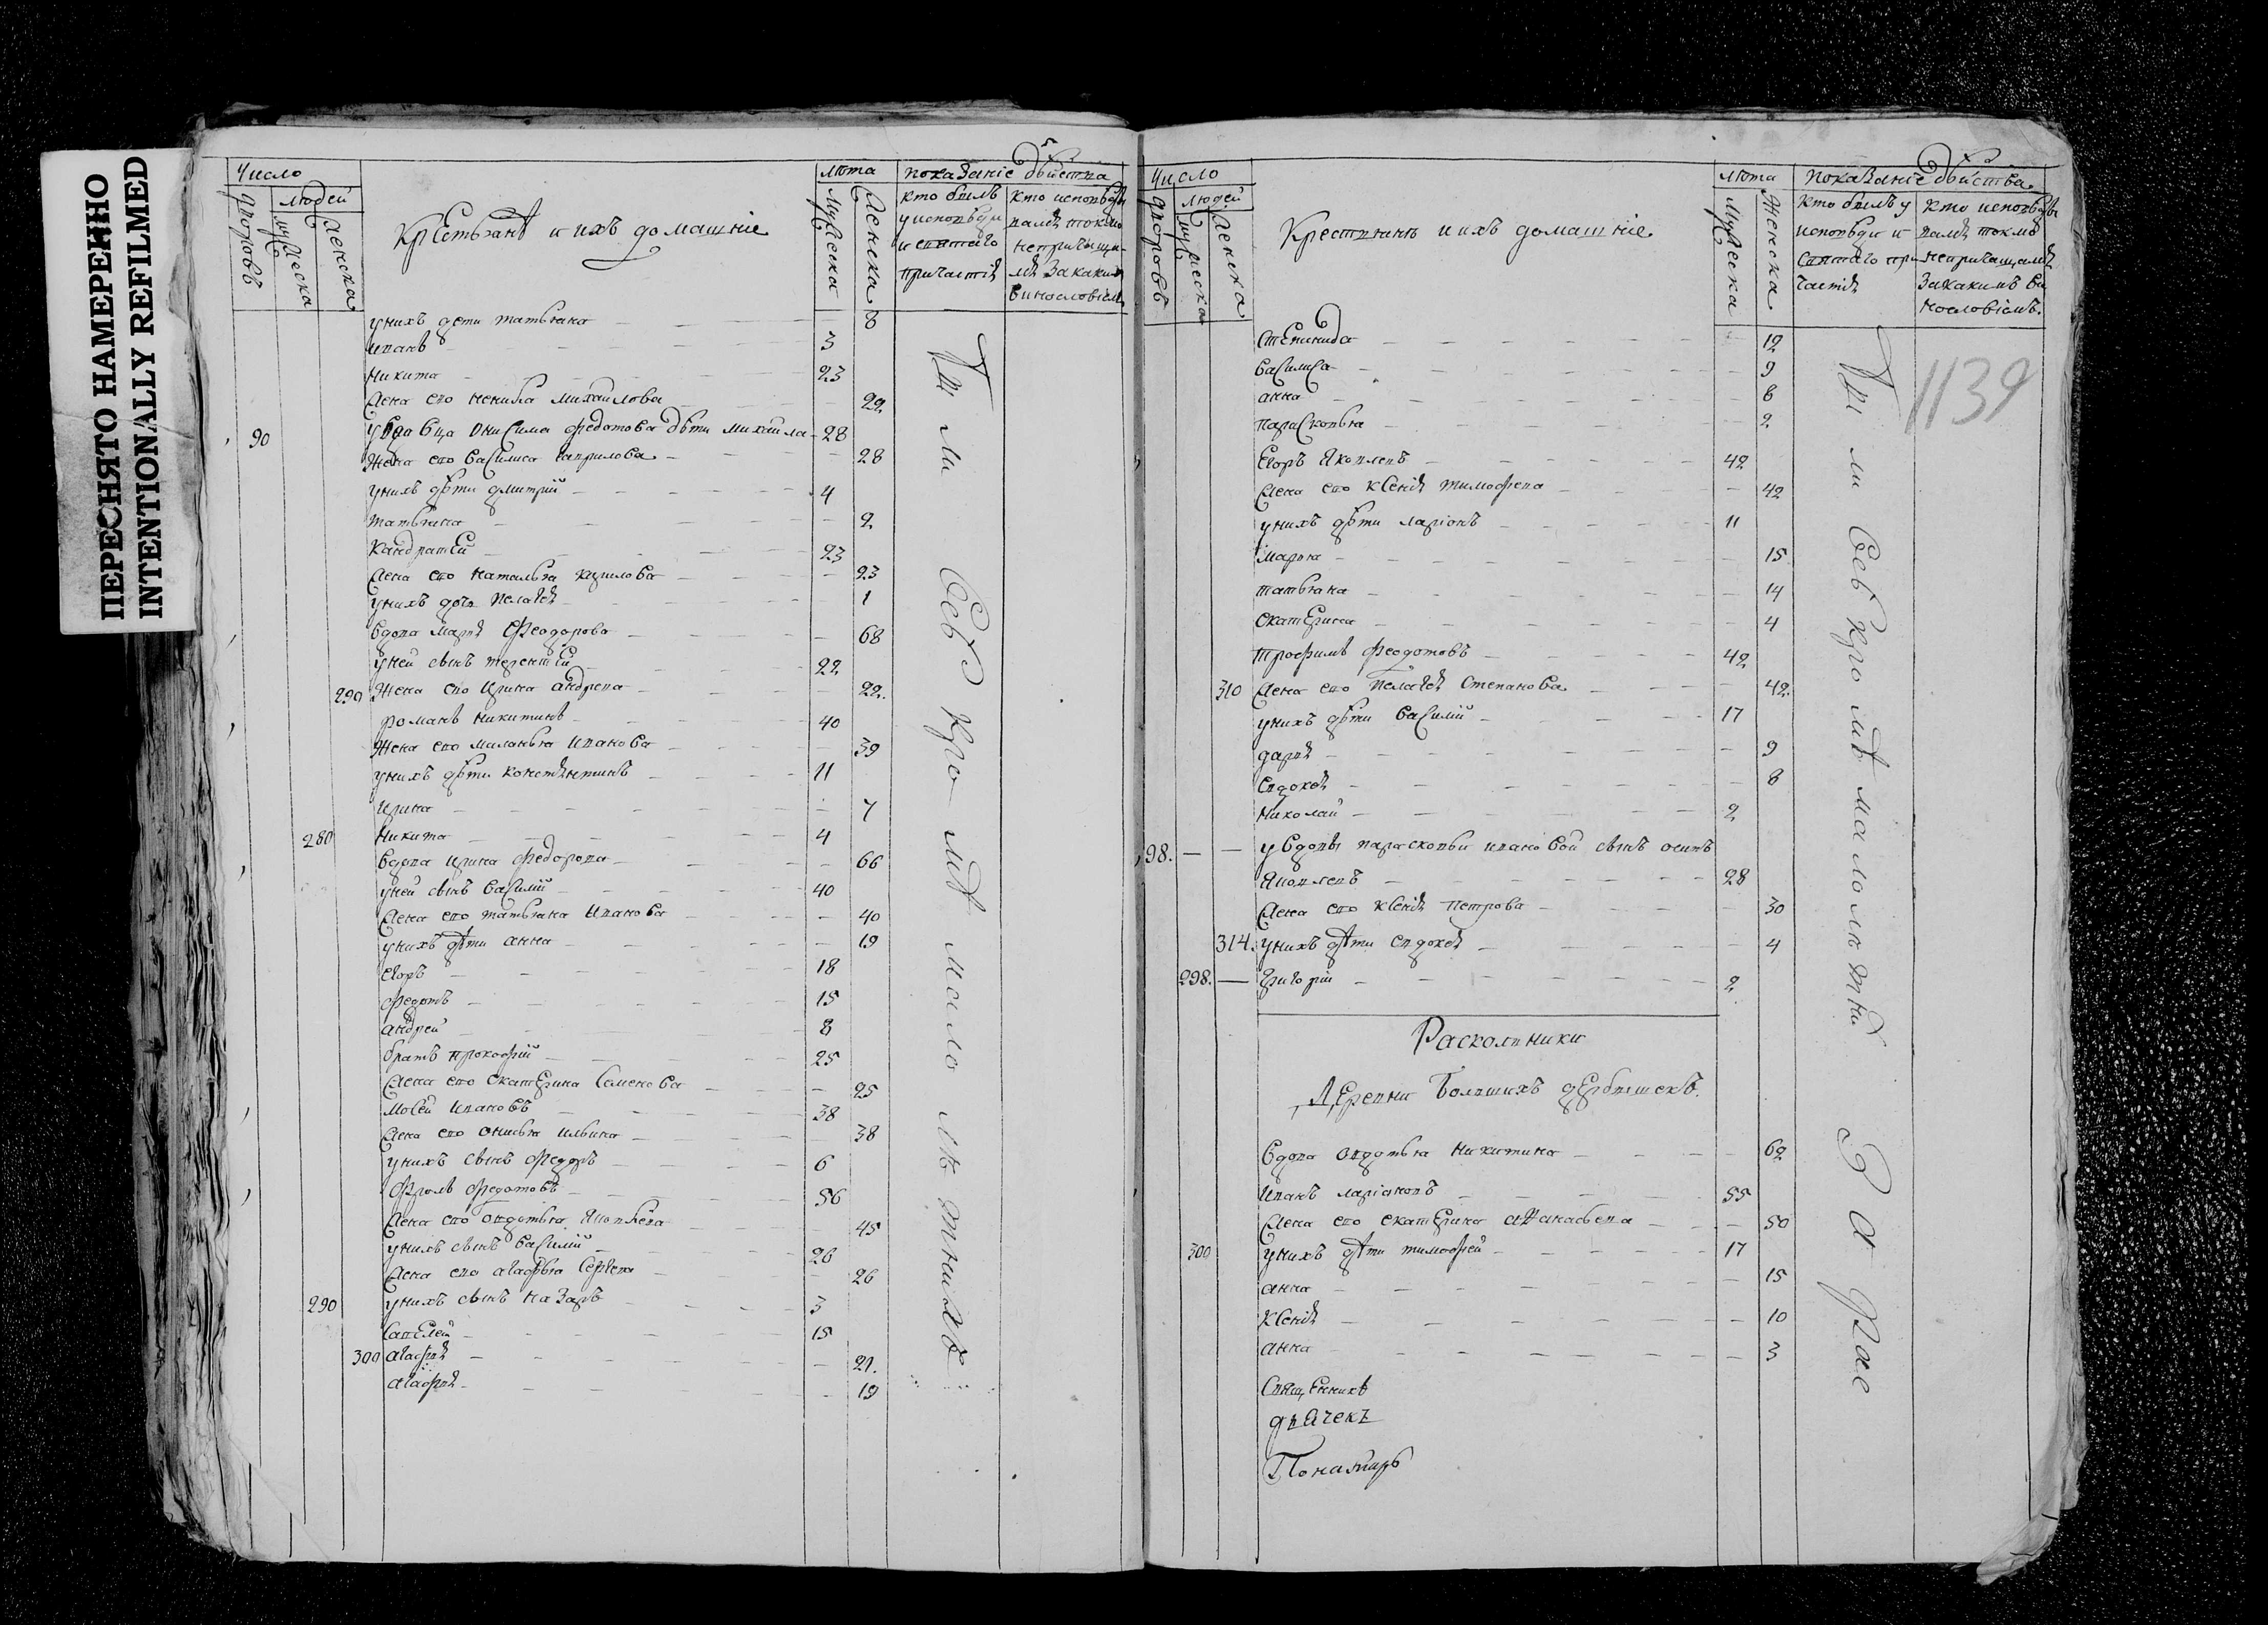 ПЕРЕСНЯТО НАМЕРЕННО
INTENTIONALLY REFILMED
Число
людей
дворовъ
мужеска
женска
Крестьянъ и ихъ домашніе
лѣта
мужеска
женска
показаніе дѣйства
кто былъ у исповѣди и святаго причастія
кто исповѣдывался токмо не причащался за какимъ винословіемъ
у нихъ дети татьяна 8
иванъ 3
никита 23
Жена ево ненила михаилова 22
90 у вдовца онисима федотова дѣти михаила 28
Жена ево василиса гаврилова 28
у нихъ дѣти дмитрій 4
татьяна 2
кандратей 23
Жена ево наталья кирилова 23
у нихъ дочь пелагея 1
вдова марья феодорова 68
у ней сынъ терентей 22
290 Жена ево ирина андрева 22.
романъ никитинъ 40
Жена ево миланья иванова 39
у нихъ дѣти константинъ 11
ирина 7
280 никита 4
вдова ирина федорова 66
у ней сынъ василій 40
Жена ево татьяна иванова 40
у нихъ дѣти анна 19
егоръ 18
федотъ 15
андрей 8
братъ прокофій 25
Жена ево екатерина семенова 25
мосей ивановъ 38
Жена ево онисья ильина 38
у нихъ сынъ федоръ 6
фролъ федотовъ 56
Жена ево овдотья яковлева 45
у нихъ сынъ василій 26
Жена ево агафья сергева 26
290 у нихъ сынъ назаръ 3
савелей 15
300 агафья 21.
агафья 19
Ти ли всѣ кромѣ малолѣтныхъ
Число
людей
дворовъ
мужеска
женска
Крестьянъ и ихъ домашніе
лѣта
мужеска
женска
показаніе дѣйства
кто былъ у исповѣди и святаго причастія
кто исповѣдывался токмо не причащался за какимъ винословіемъ.
1139
степанида 12
василиса 9
анна 6
парасковья 2
егоръ яковлевъ 42
Жена ево ксенія тимофева 42
у нихъ дѣти ларіонъ 11
марья 15
татьяна 14
екатерина 4
трофимъ феодотовъ 42
310 Жена ево пелагея степанова 42.
у нихъ дѣти василій 17
дарья 9
евдокея 8
николай 2
98. у вдовы парасковьи ивановой сынъ осипъ
яковлевъ 28
Жена ево ксенія петрова 30
314. у нихъ дѣти евдокея 4
298. григорій 2
Раскольники
Деревни большихъ дербышекъ.
вдова овдотья никитина 62
иванъ ларіоновъ 55
Жена ево екатерина афанасьева 50
300 у нихъ дѣти тимофей 17
анна 15
ксенія 10
анна 3
Священникъ
дьячекъ
Понамарь
Ти ли всѣ кромѣ малолѣтны